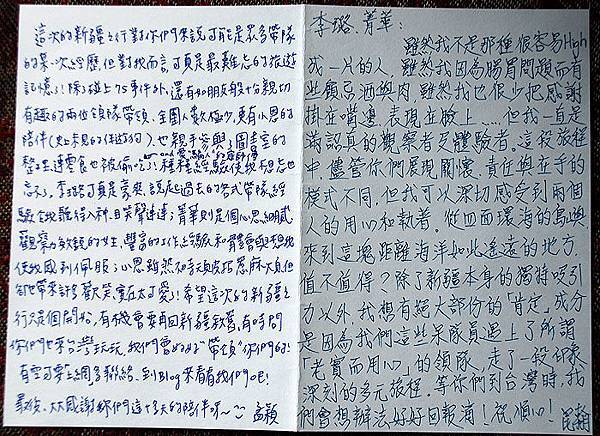 這次的新疆之行對你們來說可能是眾多帶隊
的某一次經歷,但對我而言,可真是最難忘的旅遊
記憶了!除了碰上75事件外,還有和朋友般十分親切
有趣的兩位領隊帶領、全團人數極少、更有小恩的
陪伴(史上未見的伴遊狗)、也親手參與了圖書室的
整理,連零食也被偷吃
忘不了。李璐可真是豪爽,說起過去的各式帶隊經
驗
觀察力敏銳的女生,豐富的工作經驗和
使我感到佩服;小恩雖然
卻也帶來許多歡笑,實在太可愛!希望這次的新疆之
行只是個開始,有機會要再回新疆敘舊,有時間
你們也來台灣玩玩,我們會好好"帶領"你們的!
有空可要上網多聯絡、到Blog來看看我們吧!
最後,大大感謝你們這十多天的陪伴呀~ 孟穎
李璐、菁華:
雖然我不是那種很容易High
成一片的人,雖然我因為腸胃問題而有
些顧忌酒與肉,雖然我也很少把感謝
掛在嘴邊、表現在臉上......但我一直是
滿認真的觀察者及體驗者。這段旅程
中,儘管你們展現關懷、責任與在乎的
模式不同,但我可以深切感受到兩個
人的用心和執著。從四面環海的島嶼
來到這塊距離海洋如此遙遠的地方,
值不值得?除了新疆本身的獨特吸引
力以外,我想有絕大部份的「肯定」成分
是因為我們這些呆隊員遇上了所謂
「老實而用心」的領隊,走了一段印象
深刻的多元旅程。等你們到台灣時,我
們會想辦法好好回報滴!祝順心!